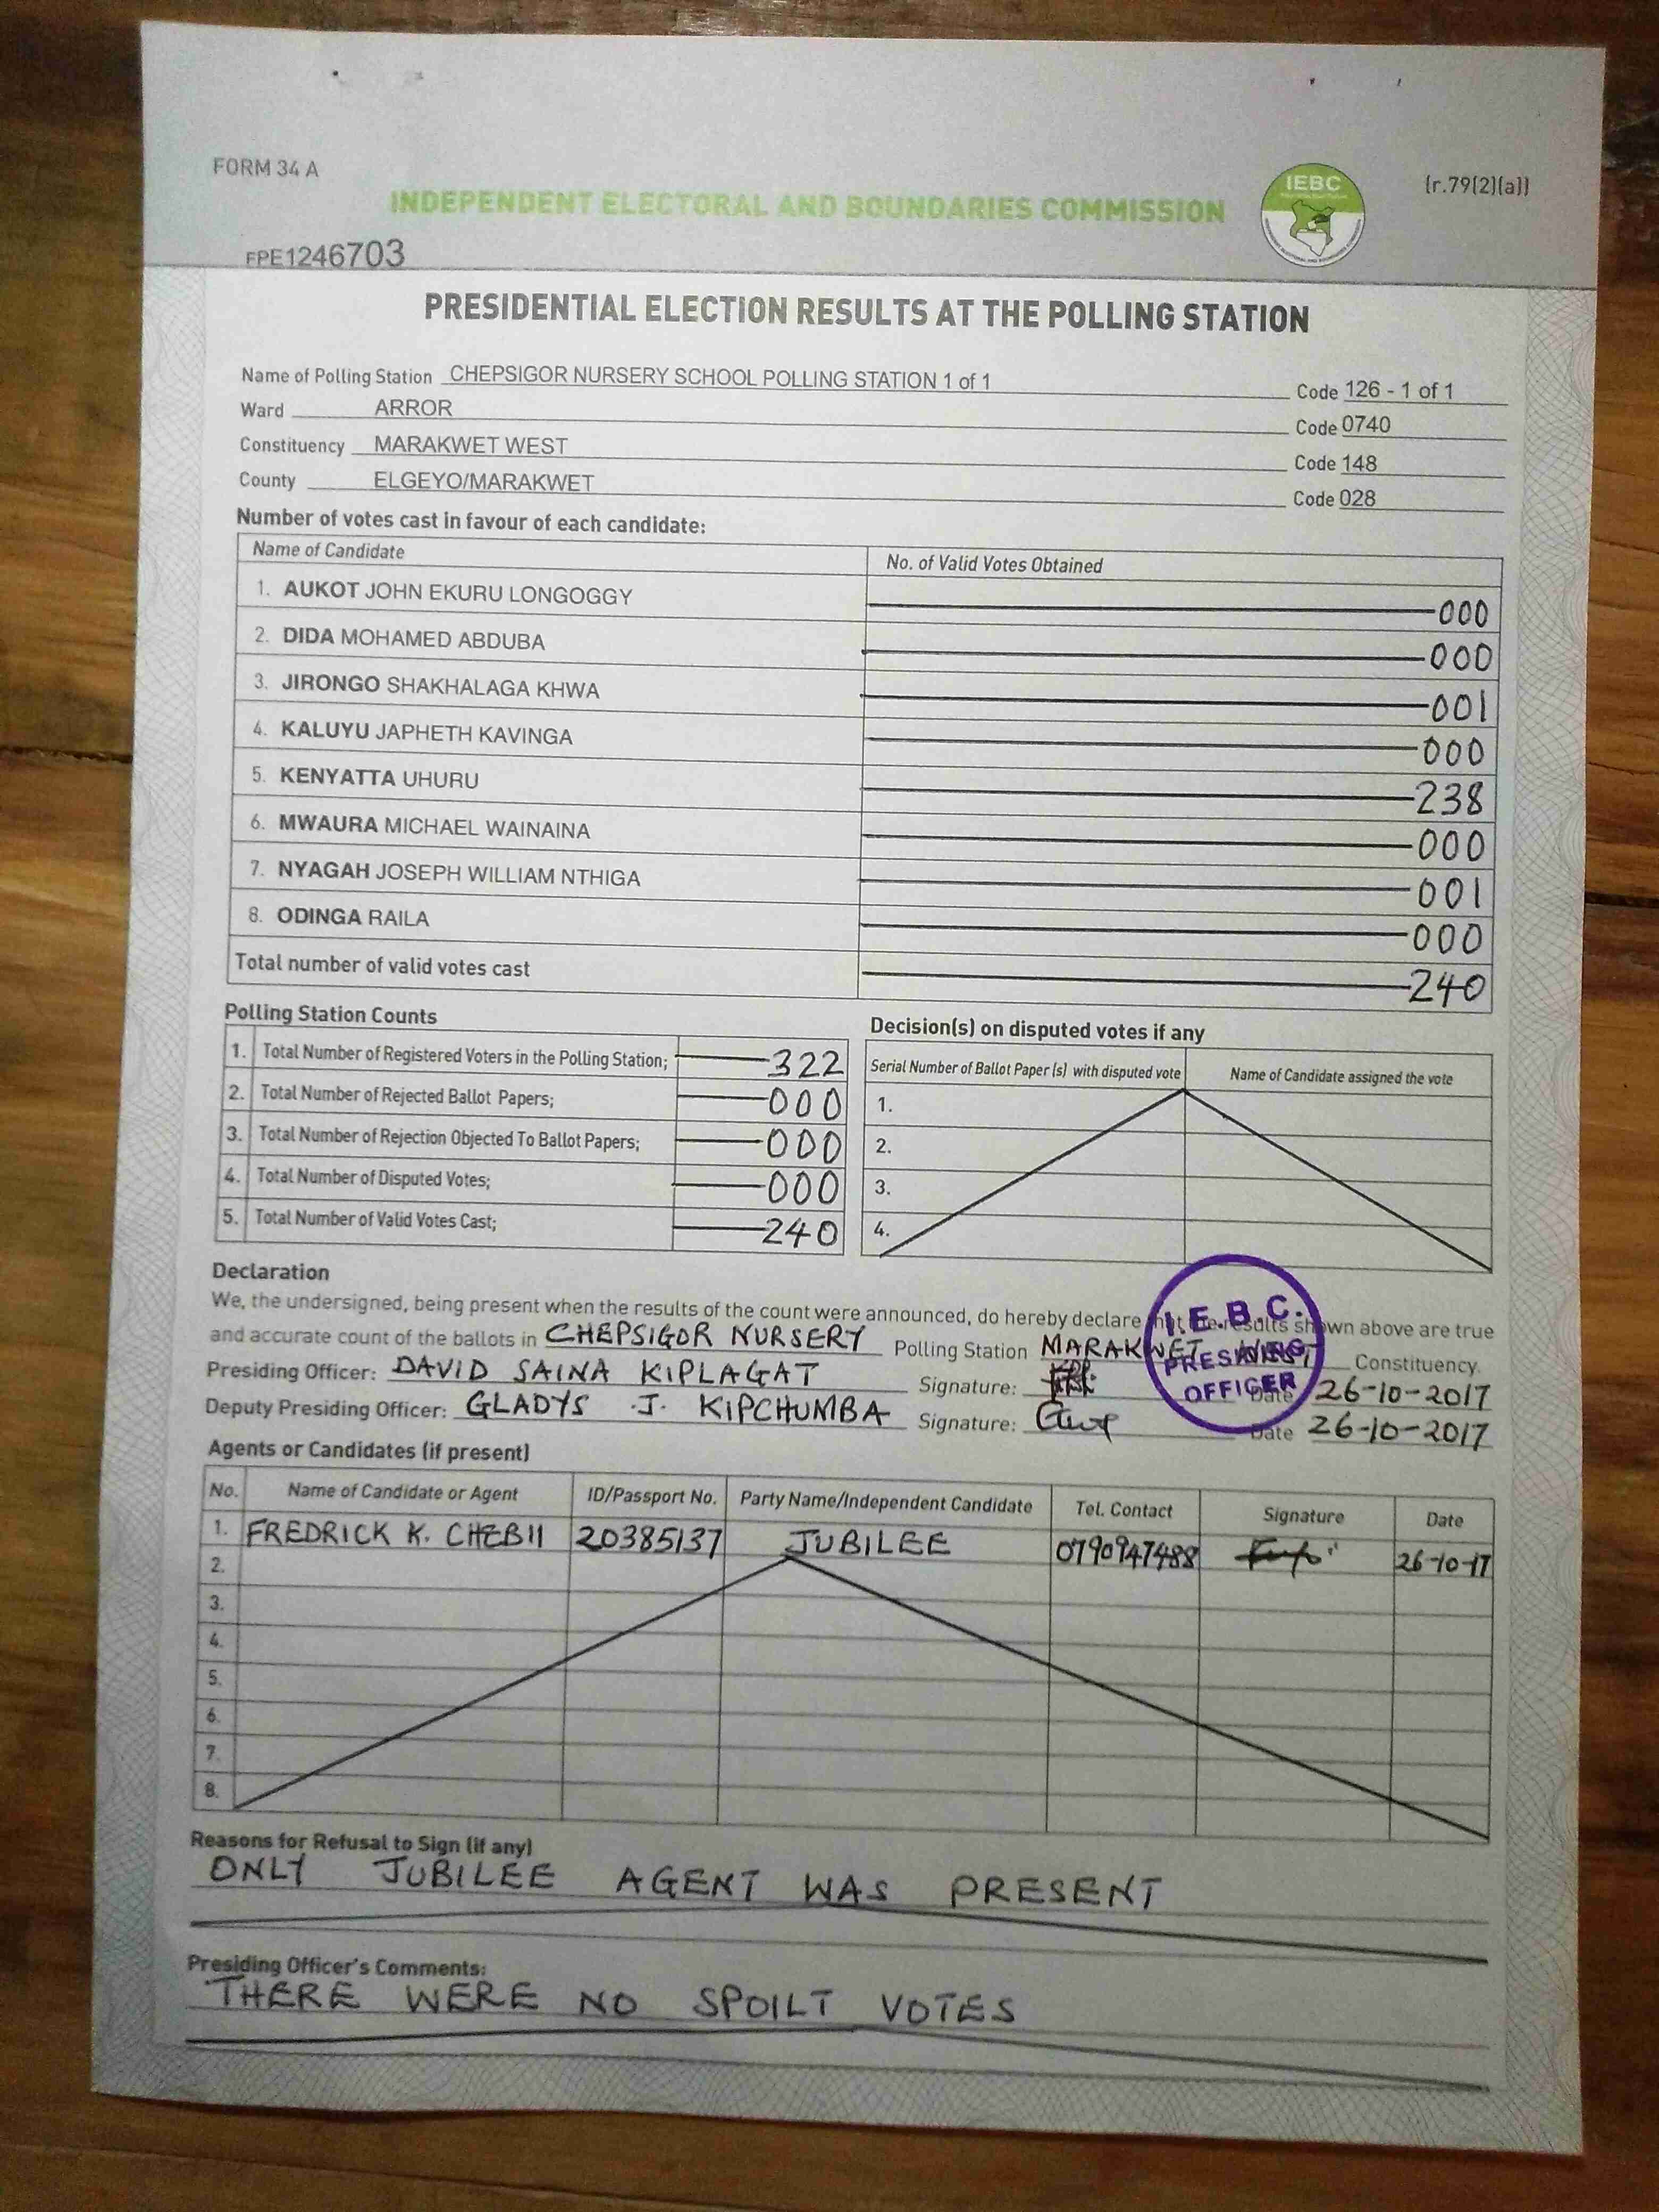 FORM 34 A
(r.79(2)(a))
IEBC
INDEPENDENT ELECTORAL AND BOUNDARIES COMMISSION
FPE1246703
PRESIDENTIAL ELECTION RESULTS AT THE POLLING STATION
Name of Polling Station CHEPSIGOR NURSERY SCHOOL POLLING STATION 1 of 1 Code 126 - 1 of 1
Ward ARROR Code 0740
Constituency MARAKWET WEST Code 148
County ELGEYO/MARAKWET Code 028
Number of votes cast in favour of each candidate:
Name of Candidate No. of Valid Votes Obtained
1. AUKOT JOHN EKURU LONGOGGY 000
2. DIDA MOHAMED ABDUBA 000
3. JIRONGO SHAKHALAGA KHWA 001
4. KALUYU JAPHETH KAVINGA 000
5. KENYATTA UHURU 238
6. MWAURA MICHAEL WAINAINA 000
7. NYAGAH JOSEPH WILLIAM NTHIGA 001
8. ODINGA RAILA 000
Total number of valid votes cast 240
Polling Station Counts
1. Total Number of Registered Voters in the Polling Station; 322
2. Total Number of Rejected Ballot Papers; 000
3. Total Number of Rejection Objected To Ballot Papers; 000
4. Total Number of Disputed Votes; 000
5. Total Number of Valid Votes Cast; 240
Decision(s) on disputed votes if any
Serial Number of Ballot Paper (s) with disputed vote Name of Candidate assigned the vote
1.
2.
3.
4.
Declaration
We, the undersigned, being present when the results of the count were announced, do hereby declare that the results shown above are true
and accurate count of the ballots in CHEPSIGOR NURSERY Polling Station MARAKWET WEST Constituency.
Presiding Officer: DAVID SAINA KIPLAGAT Signature: Date 26-10-2017
Deputy Presiding Officer: GLADYS J. KIPCHUMBA Signature: Date 26-10-2017
I.E.B.C.
PRESIDING
OFFICER
Agents or Candidates (if present)
No. Name of Candidate or Agent ID/Passport No. Party Name/Independent Candidate Tel. Contact Signature Date
1. FREDRICK K. CHEBII 20385137 JUBILEE 0790947488 26-10-17
2.
3.
4.
5.
6.
7.
8.
Reasons for Refusal to Sign (if any)
ONLY JUBILEE AGENT WAS PRESENT
Presiding Officer's Comments:
THERE WERE NO SPOILT VOTES